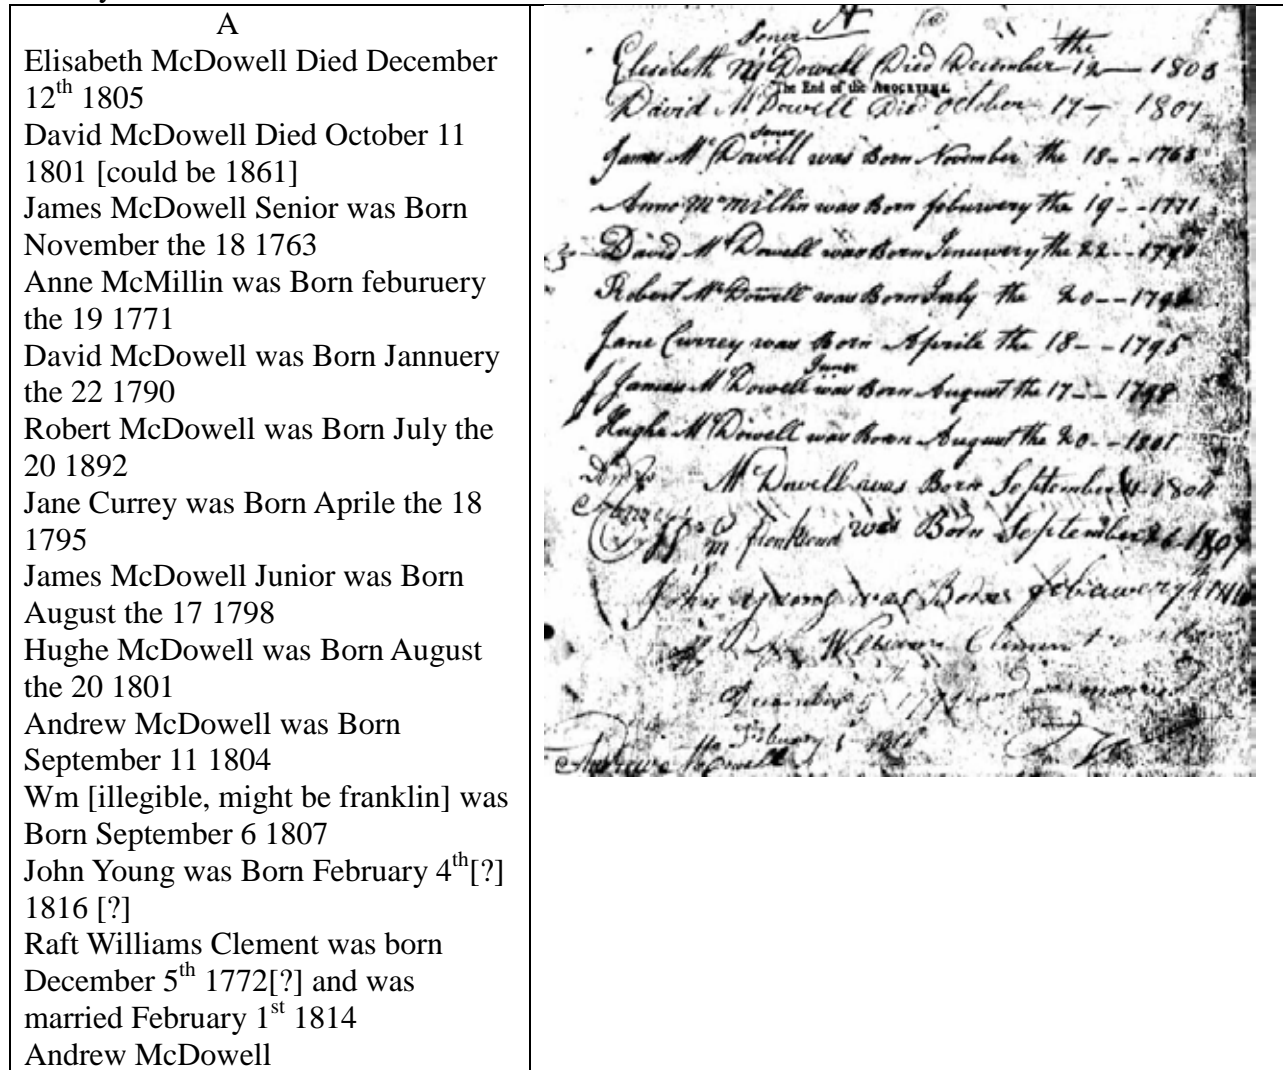 A
Elisabeth McDowell Died December
12th 1805
David McDowell Died October 11
1801 [could be 1861]
James McDowell Senior was Born
November the 18 1763
Anne McMillin was Born feburuery
the 19 1771
David McDowell was Born Jannuery
the 22 1790
Robert McDowell was Born July the
20 1892
Jane Currey was Born Aprile the 18
1795
James McDowell Junior was Born
August the 17 1798
Hughe McDowell was Born August
the 20 1801
Andrew McDowell was Born
September 11 1804
Wm [illegible, might be franklin] was
Born September 6 1807
John Young was Born February 4th[?]
1816 [?]
Raft Williams Clement was born
December 5th 1772[?] and was
married February 1st 1814
Andrew McDowell
A
Sener
the
Elesibeth McDowell Died December 12 — 1805
The End of the APOCRYPHA.
David McDowell Died October 17 — 1807
Senor
James McDowell was Born November the 18 - - 1763
Anne Mcmillin was Born feburwery the 19 - - 1771
David McDowell was Born Jenuwery the 22 - - 1790
Robert McDowell was Born July the 20 - - 1792
Jane Currey was Born Aprile the 18 - - 1795
Juner
James McDowell was Born August the 17 - - 1798
Hughe McDowell was Born August the 20 - - 1801
McDowell was Born September 11 1804
was Born September 26 1807
John young was Born febuwery
William Clement
December 5 and was married
Andrew McDowell